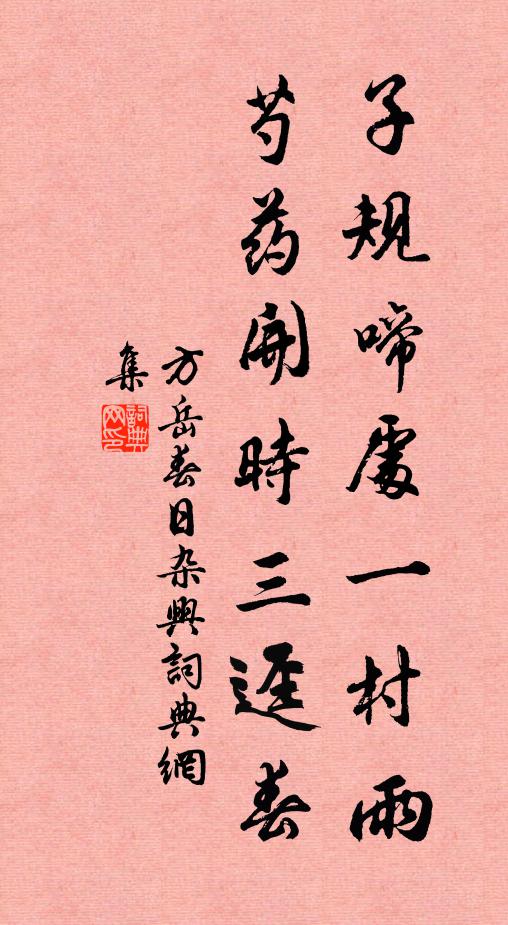 子規啼處一村雨
芍药開時三逕春
方岳春日杂興詞典網
集
詞典网印